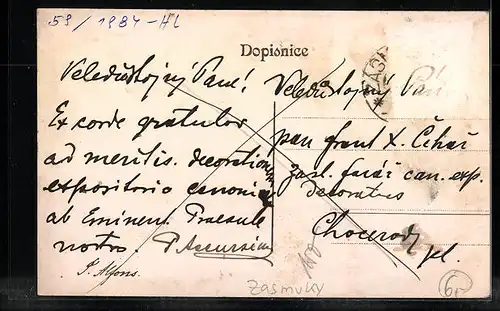 59/1984-HL
Dopisnice
Veledůstojný Pane!
Ex corde gratulor
ad meritis. decorationem
expositorio canonic
ab Eminent. Praesule
nostro. P. Accursius
P. Alfons.
Veledůstojný Pan
pan frant. X. Čihář
zasl. farář can. exp.
decoratus
Chocerady
Zásmuky